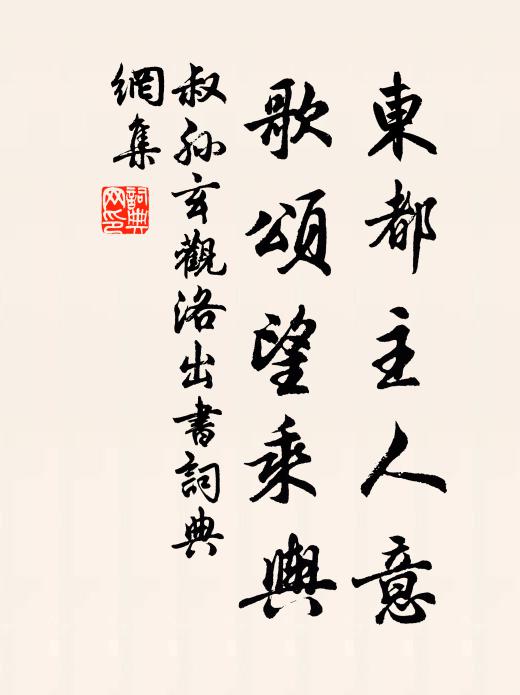 東都主人意
歌頌望乘輿
叔孫玄觀洛出書詞典
網集
詞典网印